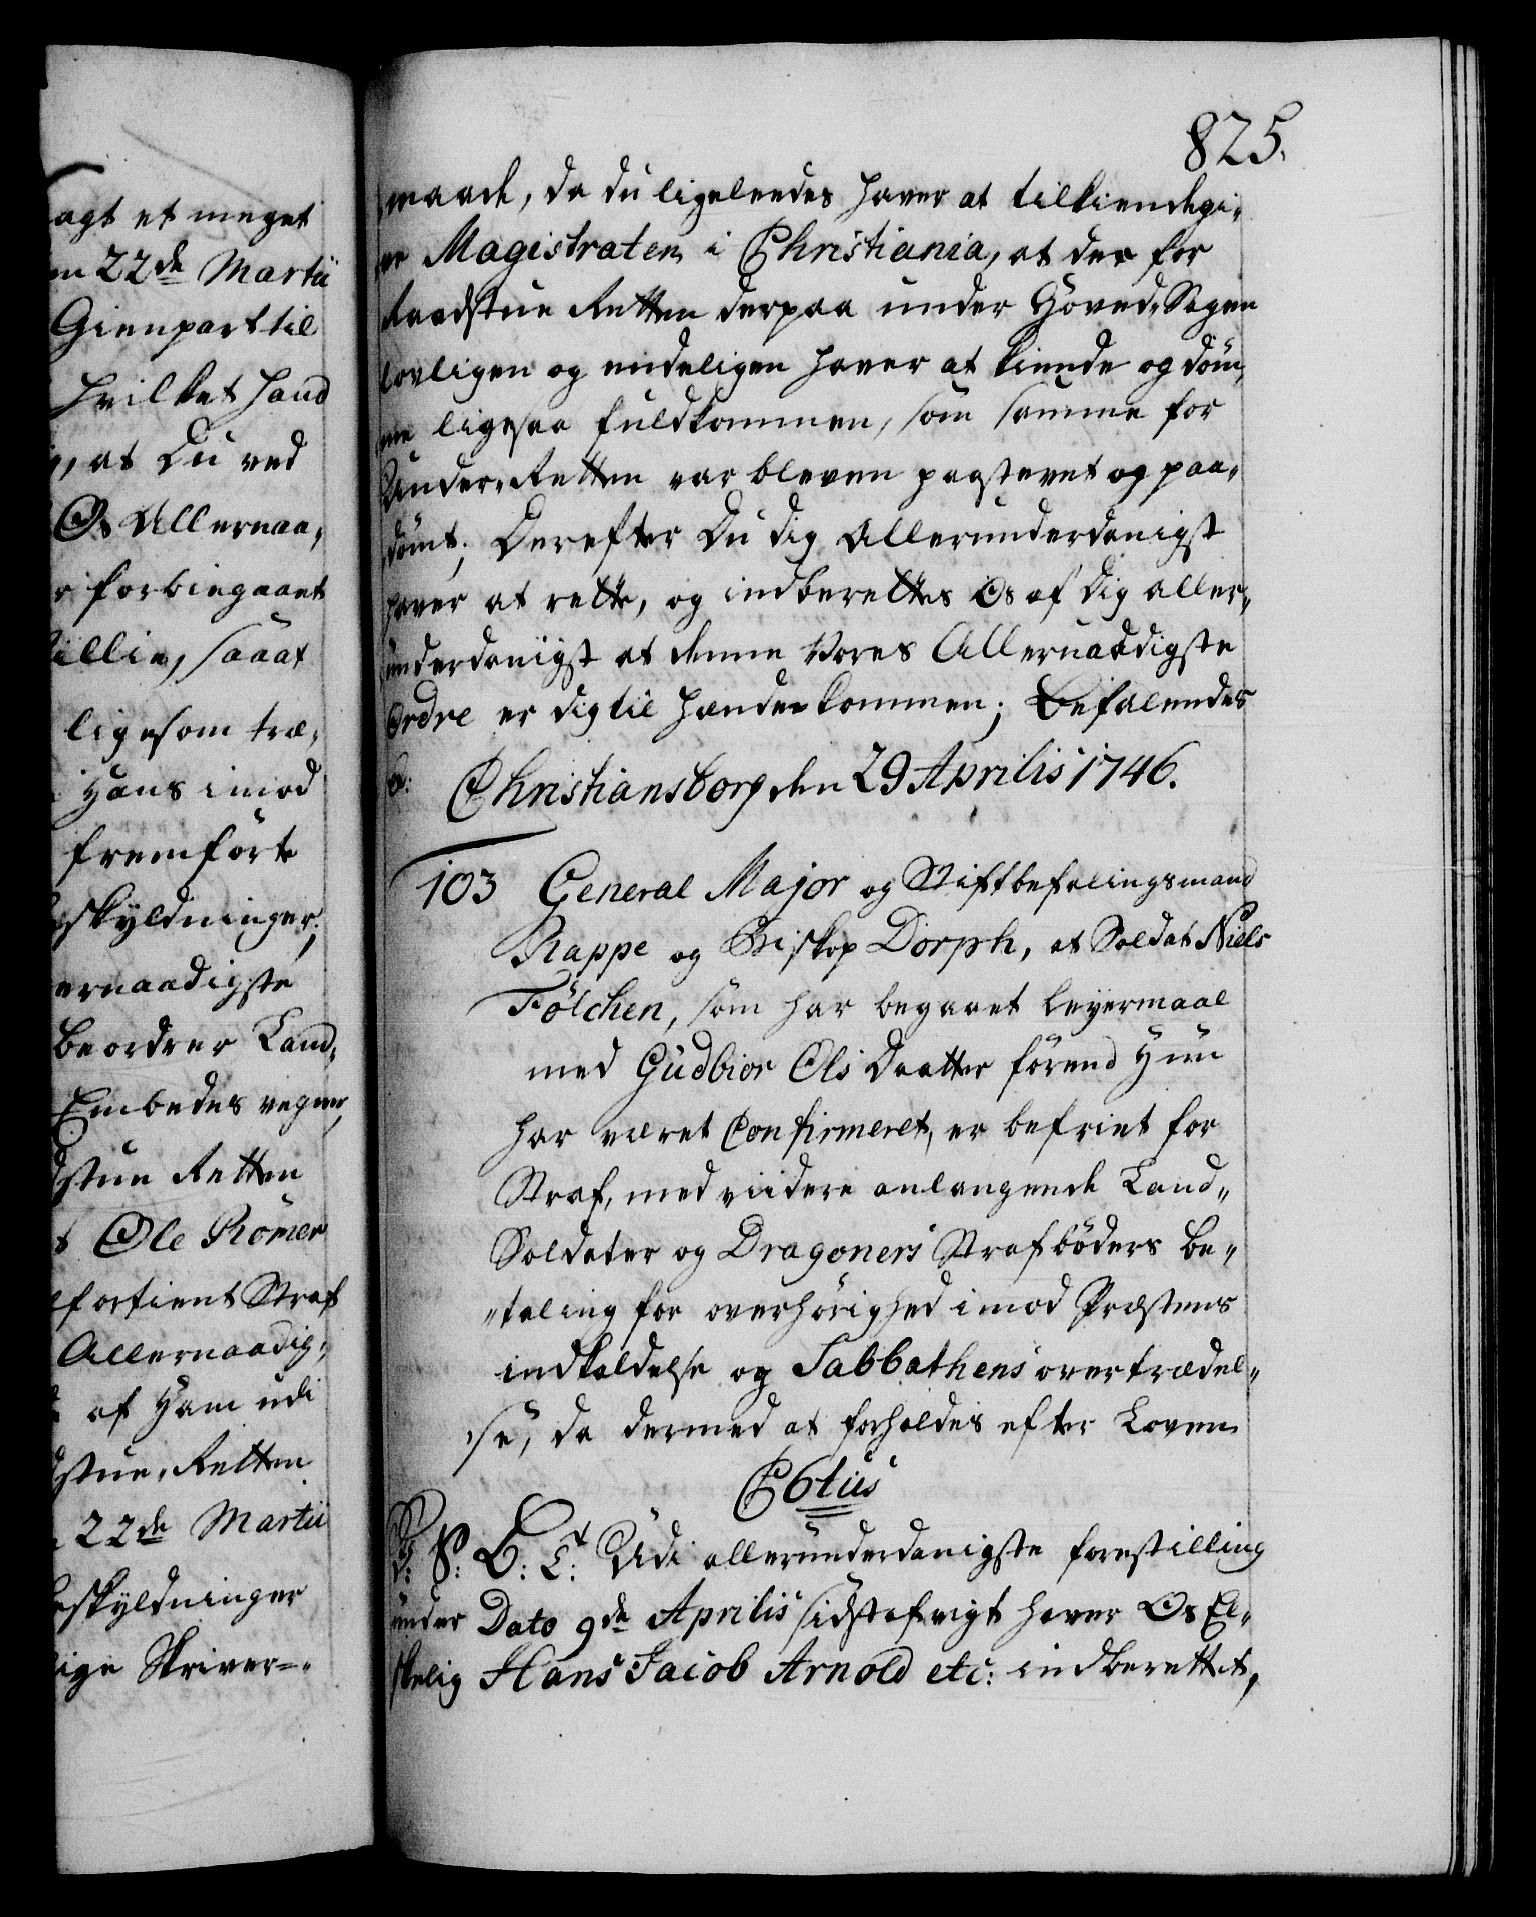 agt et meget
22de Martii
Gienpart til
hvilket hand
, at Du ved
Os Allernaa,
forbiegaaet
illie, saaat
ligesom træ,
Hans imod
fremförte
skyldninger;
ernaadigste
beordrer Land,
Embedes vegne,
stue Retten
Ole Römer
fortient Straf
Allernaadig,
af Ham udi
stue, Retten
22de Martii
eskyldninger
ige Skriver=
825.
maade, da du ligeleedes haver at tilkiendegi,
ve Magistraten i Christiania, at der for
Raadstue Retten derpaa under Hoved, Sagen
lovligen og endeligen haver at kiende og döm,
me ligesaa fuldkommen, som samme for
Under, Retten var bleven paastevnt og paa,
dömt; Derefter Du dig Allerunderdanigst
haver at rette, og indberettes Os af dig aller,
underdanigst at denne Vores Allernaadigste
Ordre er dig til hænde kommen; Befalendes
Christiansborg den 29 Aprilis 1746.
103 General Major og Stiftbefalingsmand
Rappe og Biskop Dorph, at Soldat Niels
Fölchen, som har begaaet Leyermaal
med Gudbior Ols Daatter förend Hun
har været Confirmeret, er befriet for
Straf, med viidere anlangende Land,
Soldater og Dragoners Strafböders be,
,taling for overhörighed imod Præstens
indkaldelse og Sabbathens overtrædel,
,se, da dermed at forholdes efter Loven
C6tus
S: B: Ct. Udi allerunderdanigste forestilling
under Dato 9de Aprilis sidstafvigt haver Os El,
skelig Hans Jacob Arnold etc: indberettet,